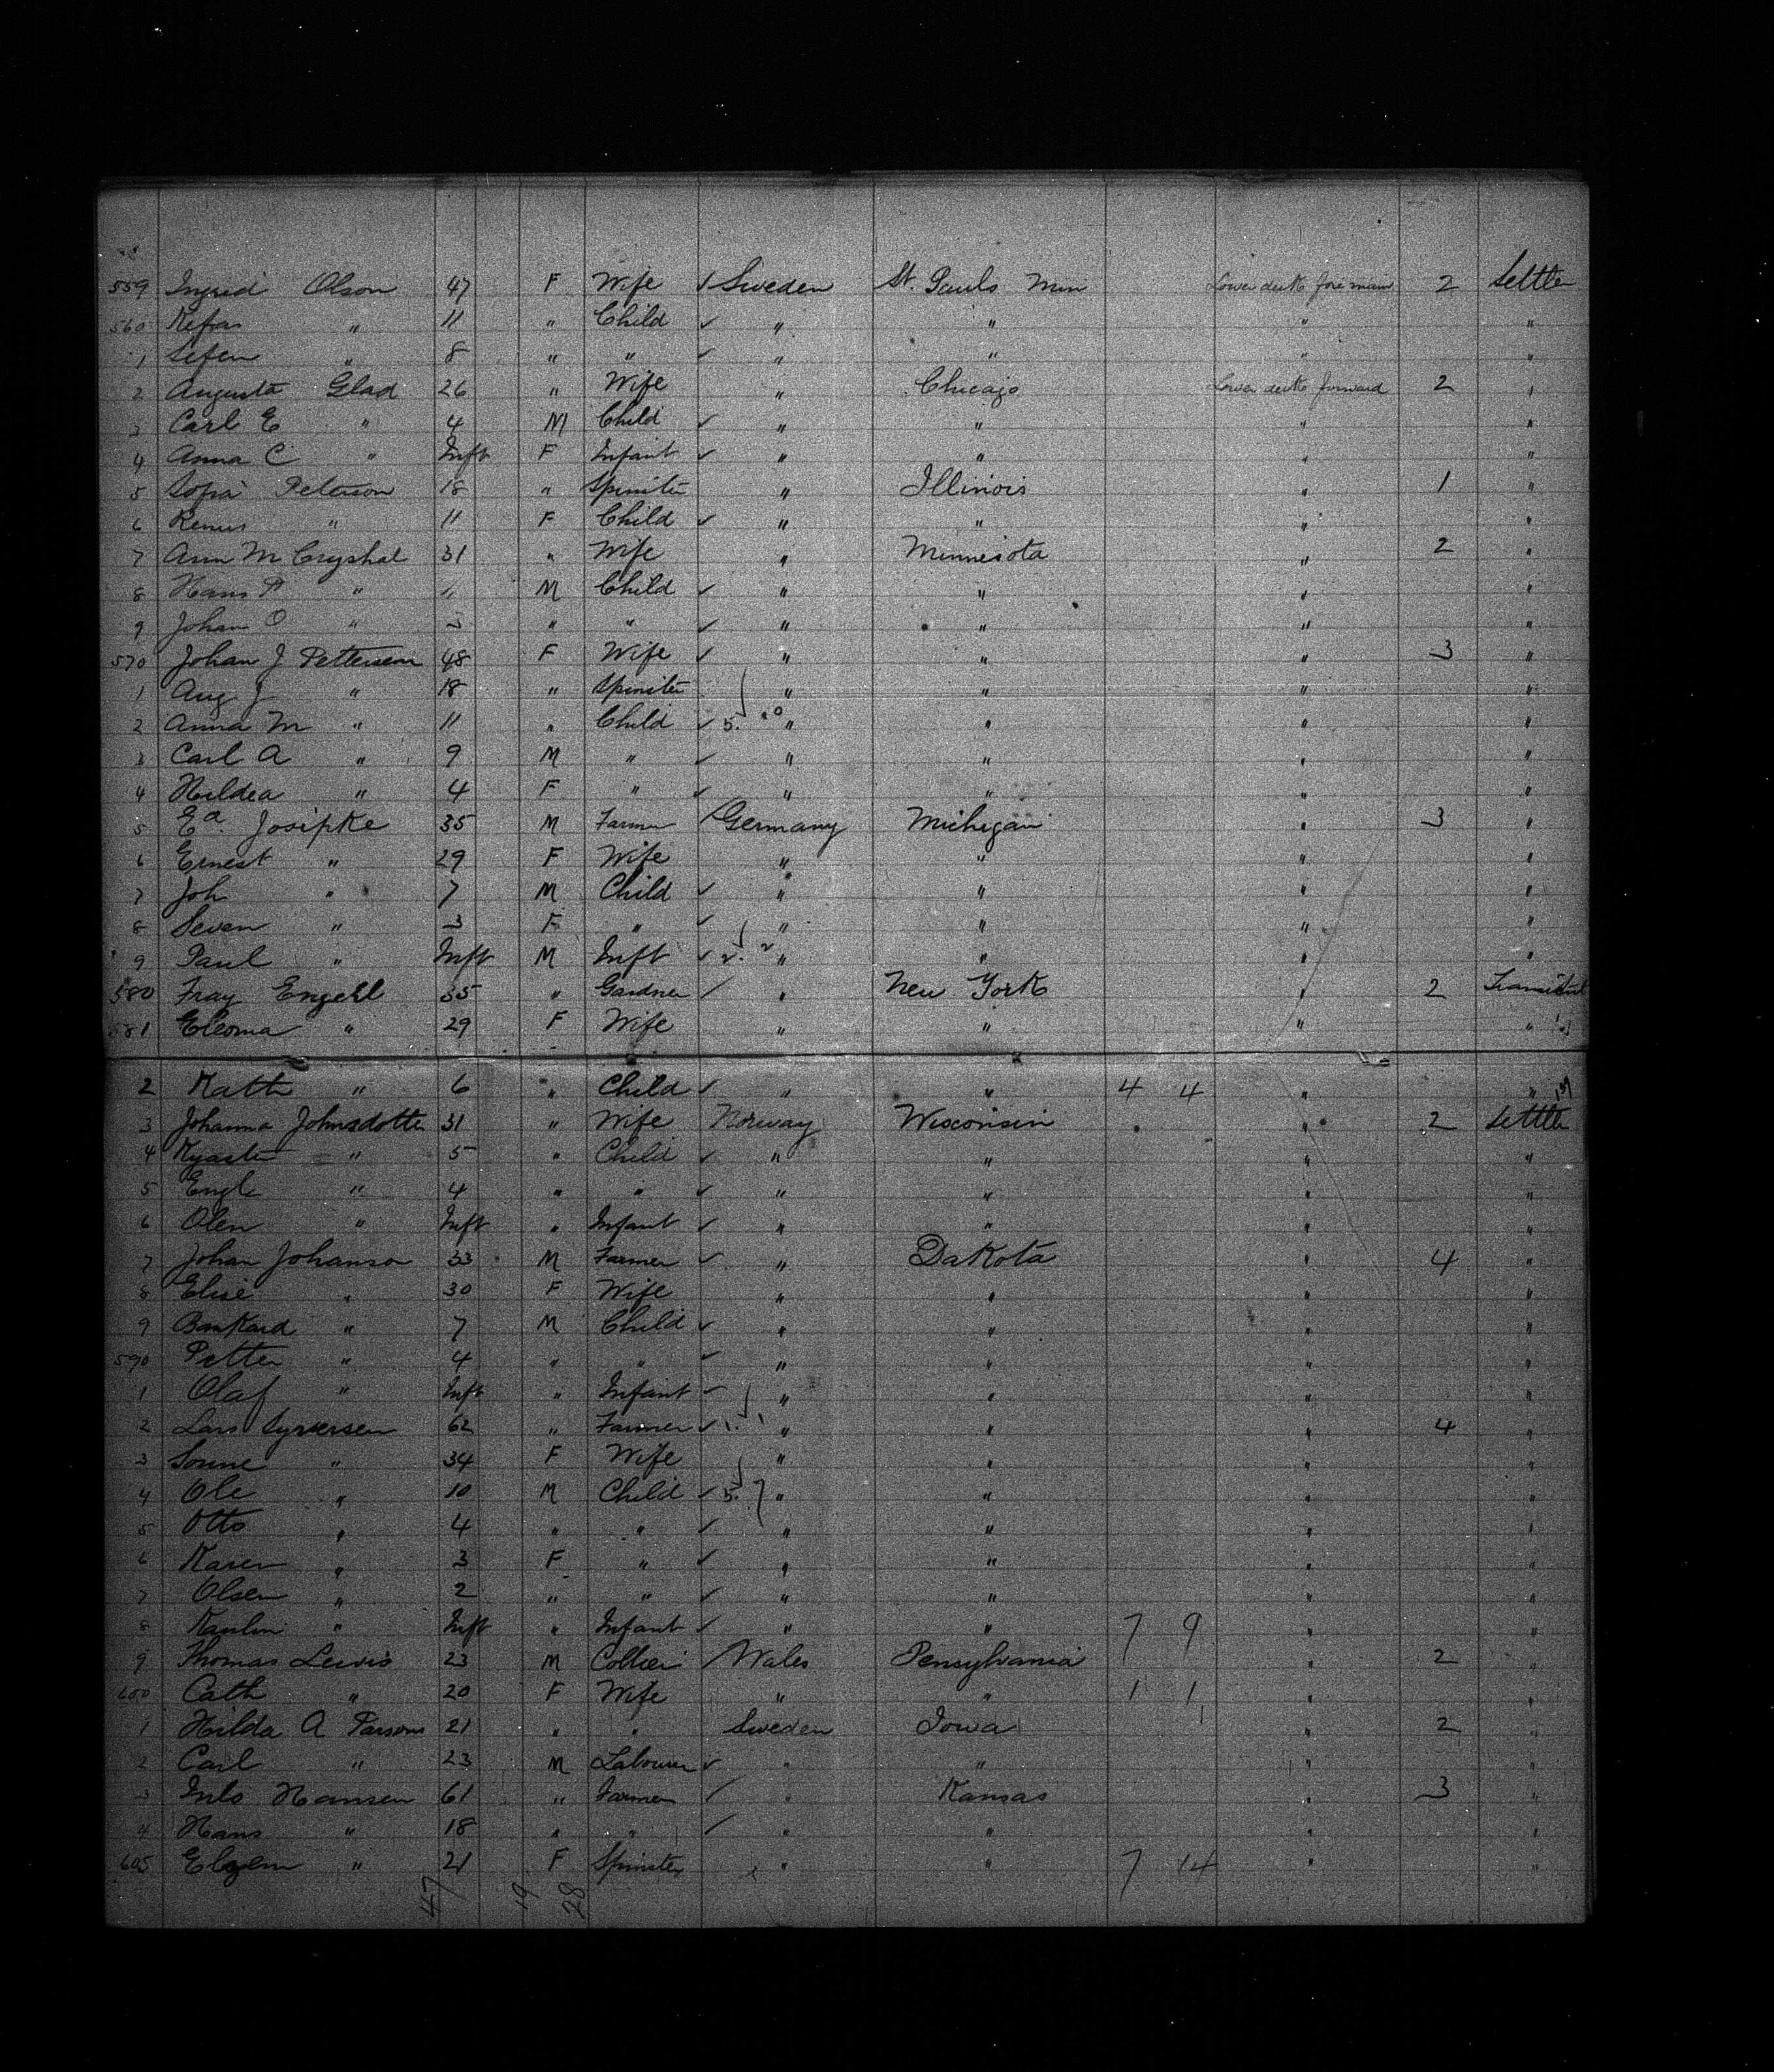 559 Ingrid Olson 47 F Wife Sweden St. Pauls Min Lower deck fore main 2 Settler
560 Kefas " 11 " Child " " " "
1 Sefen " 8 " " " " " "
2 Augusta Glad 26 " Wife " Chicago Lower deck forward 2 "
3 Carl E " 4 M Child " " " "
4 Anna C " Inft F Infant " " " "
5 Sofia Peterson 18 " Spinster " Illinois " 1 "
6 Renus " 11 F Child " " " "
7 Ann M Cryshal 31 " Wife " Minnesota " 2 "
8 Hans P " " M Child " " " "
9 Johan O " 3 " " " " " "
570 Johan J Petterson 48 F Wife " " " 3 "
1 Aug J " 18 " Spinster " " " "
2 Anna M " 11 " Child 5. " " " "
3 Carl A " 9 M " " " " "
4 Hildea " 4 F " " " " "
5 Ed. Josipke 35 M Farmer Germany Michigan " 3 "
6 Ernest " 29 F Wife " " " "
7 Joh " 7 M Child " " " "
8 Seven " 3 F " " " " "
9 Paul " Inft M Inft 2. " " " "
580 Fray Engell 35 " Gardner " New York " 2
581 Eleoma " 29 F Wife " " " "
2 Kath " 6 " Child " " 4 4 " "
3 Johanna Johnsdotter 31 " Wife Norway Wisconsin " 2 Settler
4 " 5 " Child " " " "
5 Engl " 4 " " " " " "
6 Olen " Inft " Infant " " " "
7 Johan Johanson 33 M Farmer " Dakota " 4 "
8 Elise " 30 F Wife " " " "
9 Bankard " 7 M Child " " " "
590 Petter " 4 " " " " " "
1 Olaf " Inft " Infant " " " "
2 Lars Syversen 62 " Farmer " " " 4 "
3 Sonne " 34 F Wife " " " "
4 Ole " 10 M Child 5. " " " "
5 Otto " 4 " " " " " "
6 Karen " 3 F " " " " "
7 Olsen " 2 " " " " " "
8 Kaulin " Inft " Infant " " 7 9 " "
9 Thomas Lewis 23 M Collier Wales Pensylvania " 2 "
600 Cath " 20 F Wife " " 1 1 " "
1 Hilda A Parsons 21 " " Sweden Iowa 1 " 2 "
2 Carl " 23 M Labourer " " " "
3 Inls Hansen 61 " Farmer " Kansas " 3 "
4 Hans " 18 " " " " " "
605 " 21 F Spinster " " 7 14 " "
47 19 28